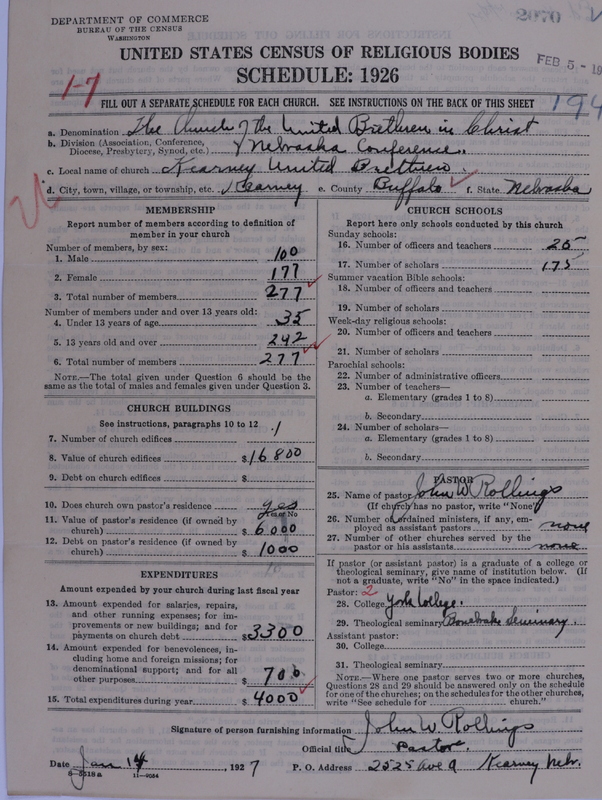 DEPARTMENT OF COMMERCE
BUREAU OF THE CENSUS
WASHINGTON
UNITED STATES CENSUS OF RELIGIOUS BODIES
SCHEDULE: 1926
FEB 5 - 19
1-7
FILL OUT A SEPARATE SCHEDULE FOR EACH CHURCH. SEE INSTRUCTIONS ON THE BACK OF THIS SHEET
194
a. Denomination The Church of the United Brethren in Christ
b. Division (Association, Conference, Diocese, Presbytery, Synod, etc.) Nebraska Conference.
c. Local name of church Kearney United Brethren.
d. City, town, village, or township, etc. Kearney e. County Buffalo f. State Nebraska
MEMBERSHIP
Report number of members according to definition of
member in your church
Number of members, by sex:
1. Male 100
2. Female 177
3. Total number of members 277
Number of members under and over 13 years old:
4. Under 13 years of age 35
5. 13 years old and over 242
6. Total number of members 277
NOTE.—The total given under Question 6 should be the
same as the total of males and females given under Question 3.
CHURCH BUILDINGS
See instructions, paragraphs 10 to 12
7. Number of church edifices 1
8. Value of church edifices $16800
9. Debt on church edifices $
10. Does church own pastor's residence yes
Yes or No
11. Value of pastor's residence (if owned by
church) $6000
12. Debt on pastor's residence (if owned by
church) $1000
EXPENDITURES
Amount expended by your church during last fiscal year
13. Amount expended for salaries, repairs,
and other running expenses; for im-
provements or new buildings; and for
payments on church debt $3300
14. Amount expended for benevolences, in-
cluding home and foreign missions; for
denominational support; and for all
other purposes $700
15. Total expenditures during year $4000
CHURCH SCHOOLS
Report here only schools conducted by this church
Sunday schools:
16. Number of officers and teachers 25
17. Number of scholars 175
Summer vacation Bible schools:
18. Number of officers and teachers
19. Number of scholars
Week-day religious schools:
20. Number of officers and teachers
21. Number of scholars
Parochial schools:
22. Number of administrative officers
23. Number of teachers—
a. Elementary (grades 1 to 8)
b. Secondary
24. Number of scholars—
a. Elementary (grades 1 to 8)
b. Secondary
PASTOR
25. Name of pastor John W Rollings
(If church has no pastor, write "None")
26. Number of ordained ministers, if any, em-
ployed as assistant pastors none
27. Number of other churches served by the
pastor or his assistants none
If pastor (or assistant pastor) is a graduate of a college or
theological seminary, give name of institution below. (If
not a graduate, write "No" in the space indicated.)
Pastor: 2
28. College York College.
29. Theological seminary Bonebrake Seminary
Assistant pastor:
30. College
31. Theological seminary
NOTE.—Where one pastor serves two or more churches,
Questions 28 and 29 should be answered only on the schedule
for one of the churches; on the schedules for the other churches,
write "See schedule for church."
Signature of person furnishing information John W Rollings
Official title Pastor
Date Jan 14, 1927 P. O. Address 2525 Ave A Kearney Nebr.
8-5518a 11-9084